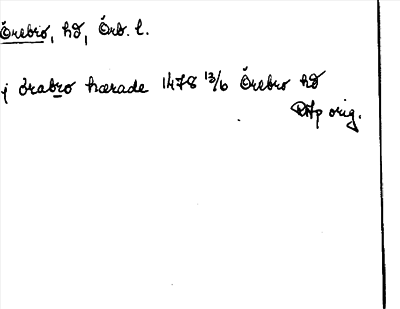 Örebro, hd, Örb. l.
j örabro hærade 1478 13/6 Örebro hd
RAp orig.